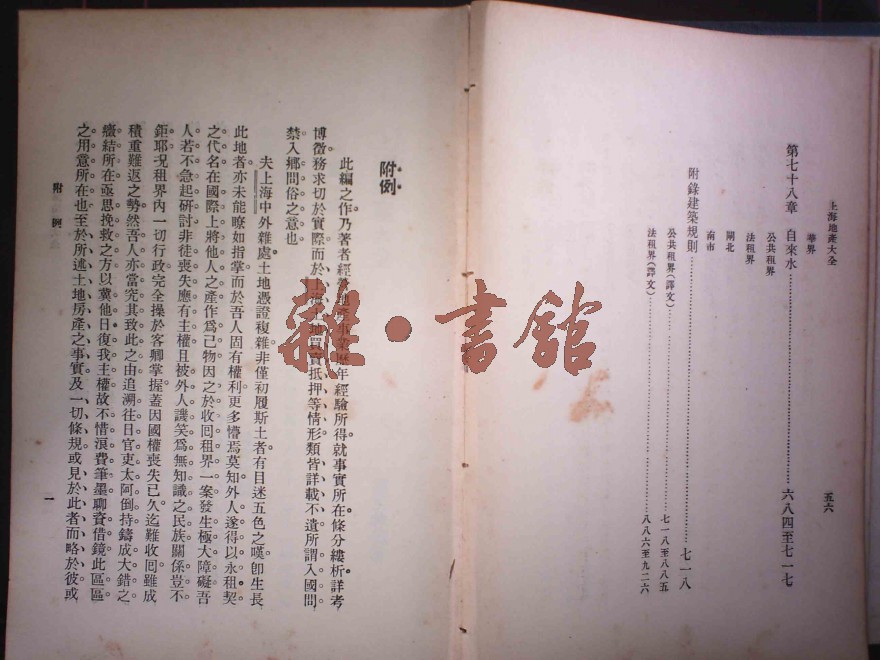 上海地產大全
五六
華界
第七十八章 自來水……六八四至七一七
公共租界
法租界
閘北
南市
附錄建築規則……七一八
公共租界(譯文)……七一八至八八五
法租界(譯文)……八八六至九二六
附例
此編之作乃著者經營地產事業歷年經驗所得就事實所在條分縷析詳考
博徵務求切於實際而於上海土地買賣抵押等情形類皆詳載不遺所謂入國問
禁入鄉問俗之意也
夫上海中外雜處土地憑證複雜非僅初履斯土者有目迷五色之嘆卽生長
此地者亦未能瞭如指掌而於吾人固有權利更多懵焉莫知外人遂得以永租契
之代名在國際上將他人之產作爲己物因之於收囘租界一案發生極大障礙吾
人若不急起硏討非徒喪失應有主權且被外人譏笑爲無知識之民族關係豈不
鉅耶况租界內一切行政完全操於客卿掌握蓋因國權喪失已久迄難收囘雖成
積重難返之勢然吾人亦當究其致此之由追溯往日官吏太阿倒持鑄成大錯之
癥結所在亟思挽救之方以冀他日復我主權故不惜浪費筆墨聊資借鏡此區區
之用意所在也至於所述土地房產之事實及一切條規或見於此者而略於彼或
附例
一
雜·書館